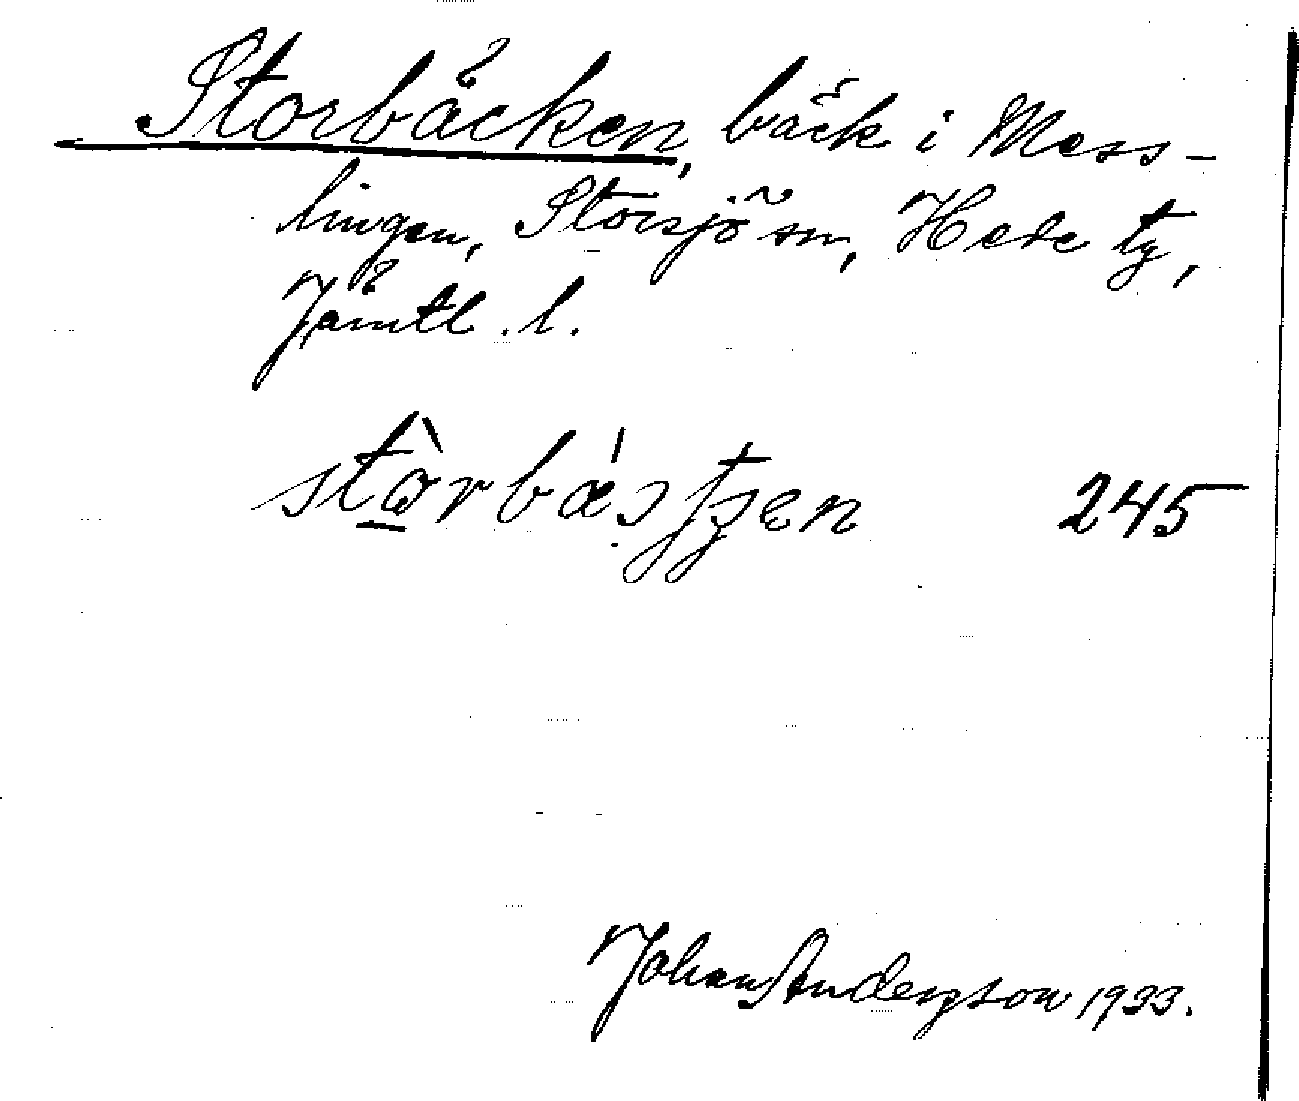 Storbäcken, bäck i Mess-
lingen, Storsjö sn, Hede tg,
Jämtl. l.
stò̲rbǽsʃʒen 245
Johan Anderzson 1933.